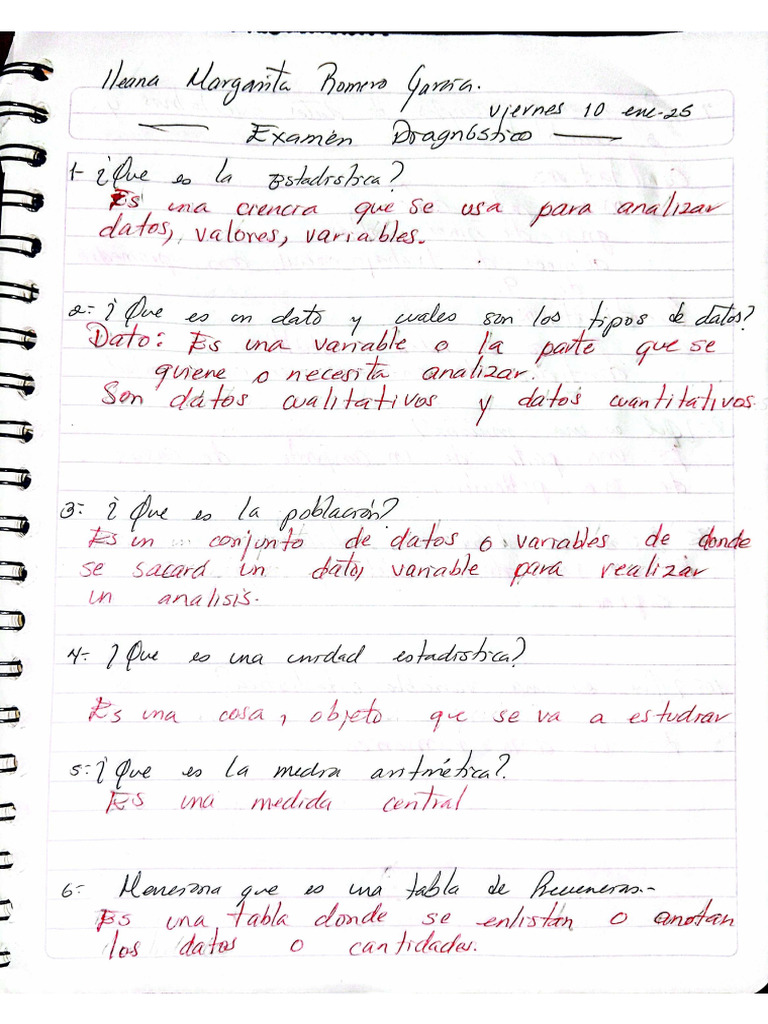 Ileana Margarita Romero García.
viernes 10 ene-25
Examen Diagnóstico
1- ¿Que es la Estadistica?
Es una ciencia que se usa para analizar
datos, valores, variables.
2- ¿Que es un dato y cuales son los tipos de datos?
Dato: Es una variable o la parte que se
quiene o necesita analizar.
Son datos cualitativos y datos cuantitativos.
3- ¿Que es la población?
Es un conjunto de datos o variables de donde
se sacará un dato, variable para realizar
un analisis.
4- ¿Que es una unidad estadistica?
Es una cosa, objeto que se va a estudiar
5- ¿Que es la media aritmética?
Es una medida central
6- Menciona que es una tabla de
Es una tabla donde se enlistan o anotan
los datos o cantidades.